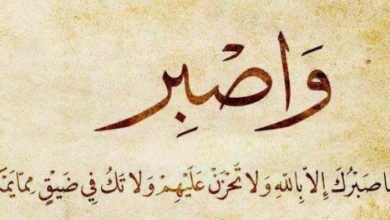 وَاصْبِر
صَبْرُكَ إِلاَّ بِاللّهِ وَلاَ تَحْزَنْ عَلَيْهِمْ وَلاَ تَكُ فِي ضَيْقٍ مِمَّا